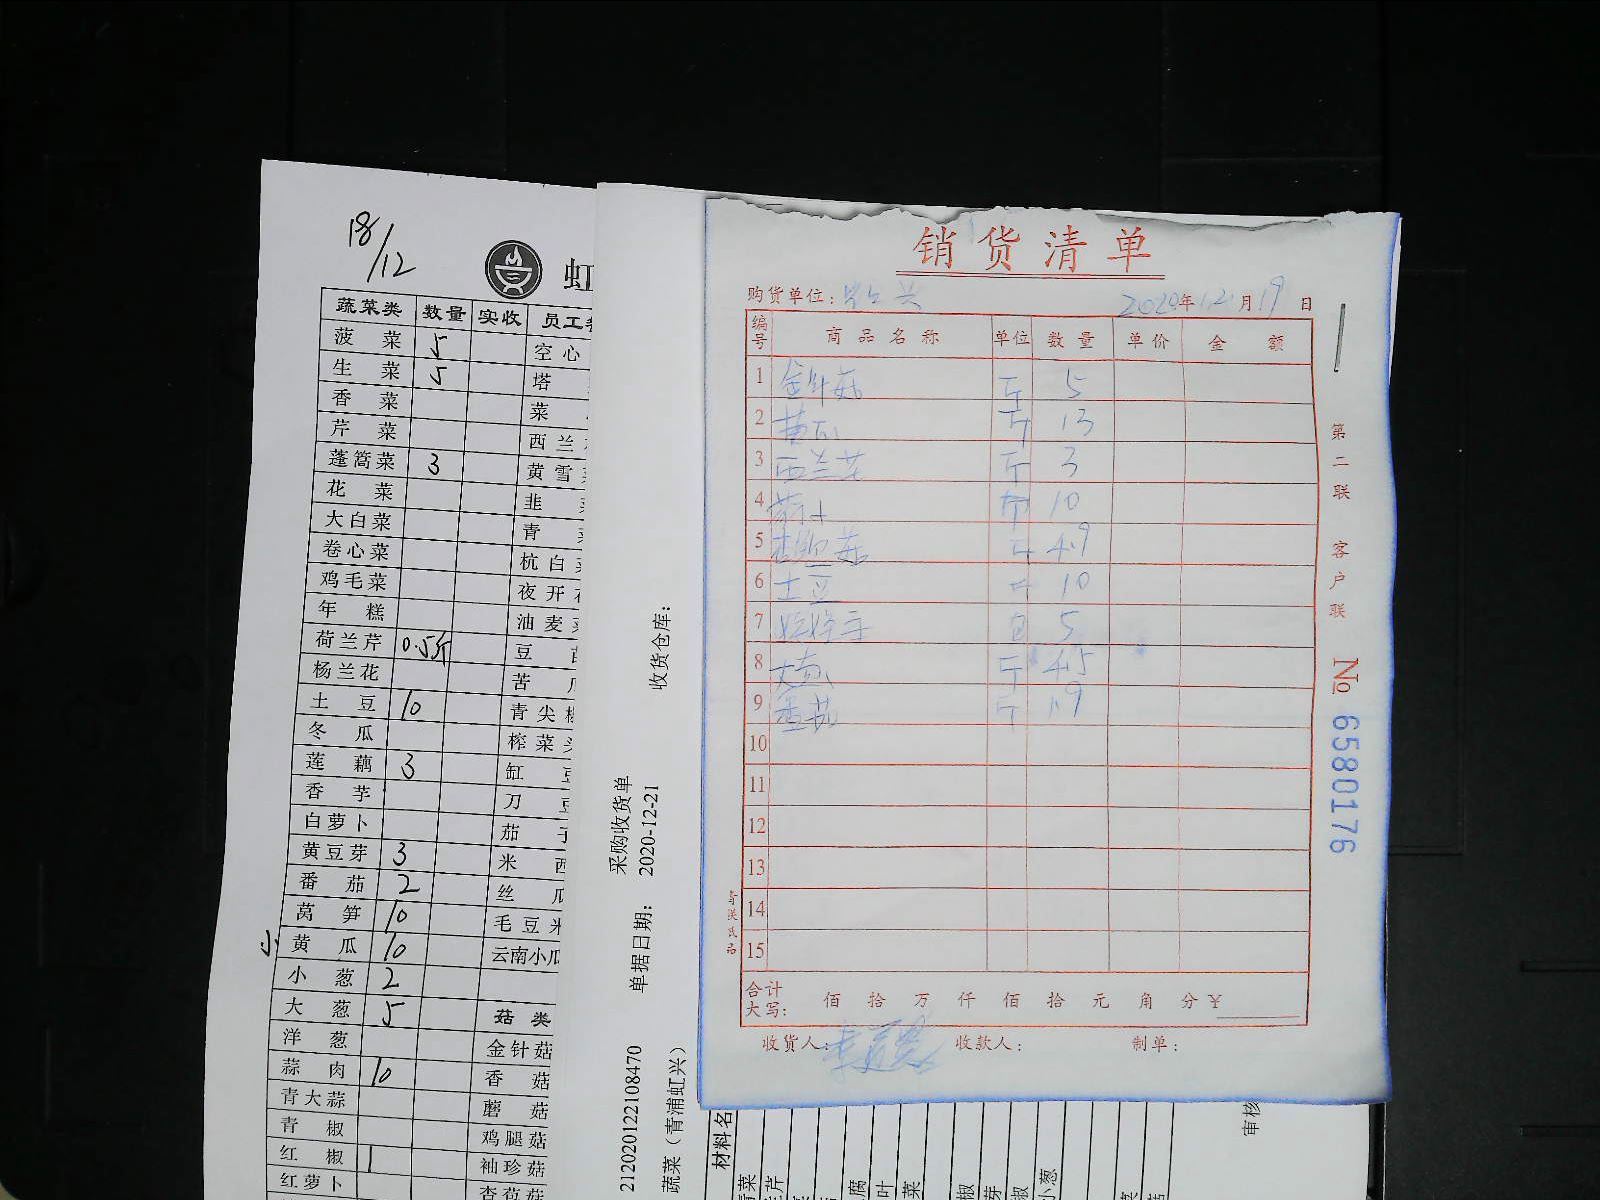 18/12
虹
蔬菜类 数量 实收 员工餐
菠菜 5 空心
生菜 5 塔
香菜 菜
芹菜 西兰
蓬蒿菜 3 黄雪
花菜 韭
大白菜 青
卷心菜 杭白
鸡毛菜 夜开
年糕 油麦
荷兰芹 0.5斤 豆
杨兰花 苦
土豆 10 青尖
冬瓜 榨菜
莲藕 3 缸
香芋 刀
白萝卜 茄
黄豆芽 3 米
番茄 2 丝
莴笋 10 毛豆
小 黄瓜 10 云南小瓜
小葱 2
大葱 5 菇类
洋葱 金针菇
蒜肉 10 香菇
青大蒜 蘑菇
青椒 鸡腿菇
红椒 1 袖珍菇
红萝卜 杏苞菇
采购收货单
单据日期: 2020-12-21
收货仓库:
212020122108470
蔬菜（青浦虹兴）
材料名
审核
销货清单
购货单位: 2020年12月19日
编号 商品名称 单位 数量 单价 金额
1 金针菇 斤 5
2 黄瓜 斤 13
3 西兰花 斤 3
4 斤 10
5 杏鲍菇 斤 4.9
6 土豆 斤 10
7 包 5
8 大葱 斤 4.5
9 番茄 斤 1.9
10
11
12
13
14
15
合计大写: 佰 拾 万 仟 佰 拾 元 角 分 ¥
收货人: 收款人: 制单:
第二联 客户联
No 6580176